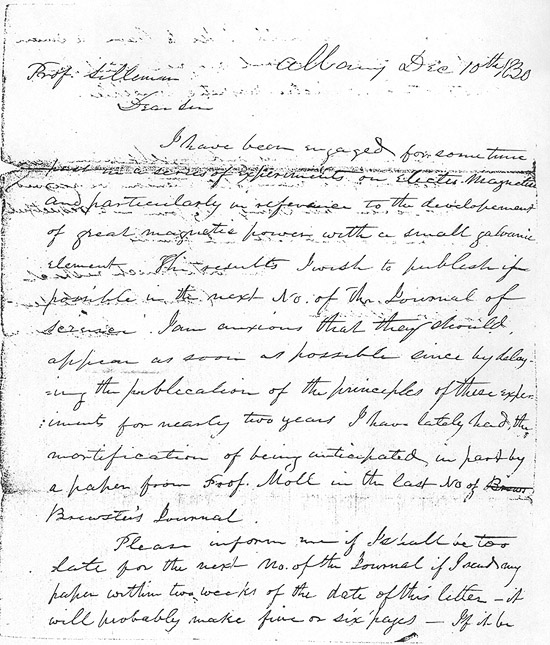 Albany Dec 10th 1830
Prof. Silleman
Dear Sir
I have been engaged for sometime
past in a series of experiments on Electro Magnetism
and particularly in reference to the developement
of great magnetic power with a small galvanic
element. The results I wish to publish if
possible in the next No. of the Journal of
science. I am anxious that they should
appear as soon as possible since by delay
=ing the publication of the principles of these exper
=iments for nearly two years I have lately had the
mortification of being anticipated in part by
a paper from Prof. Moll in the last No of
Brewster's Journal.
Please inform me if I shall be too
late for the next No. of the Journal if I send my
paper within two weeks of the date of this letter – it
will probably make five or six pages – If it be